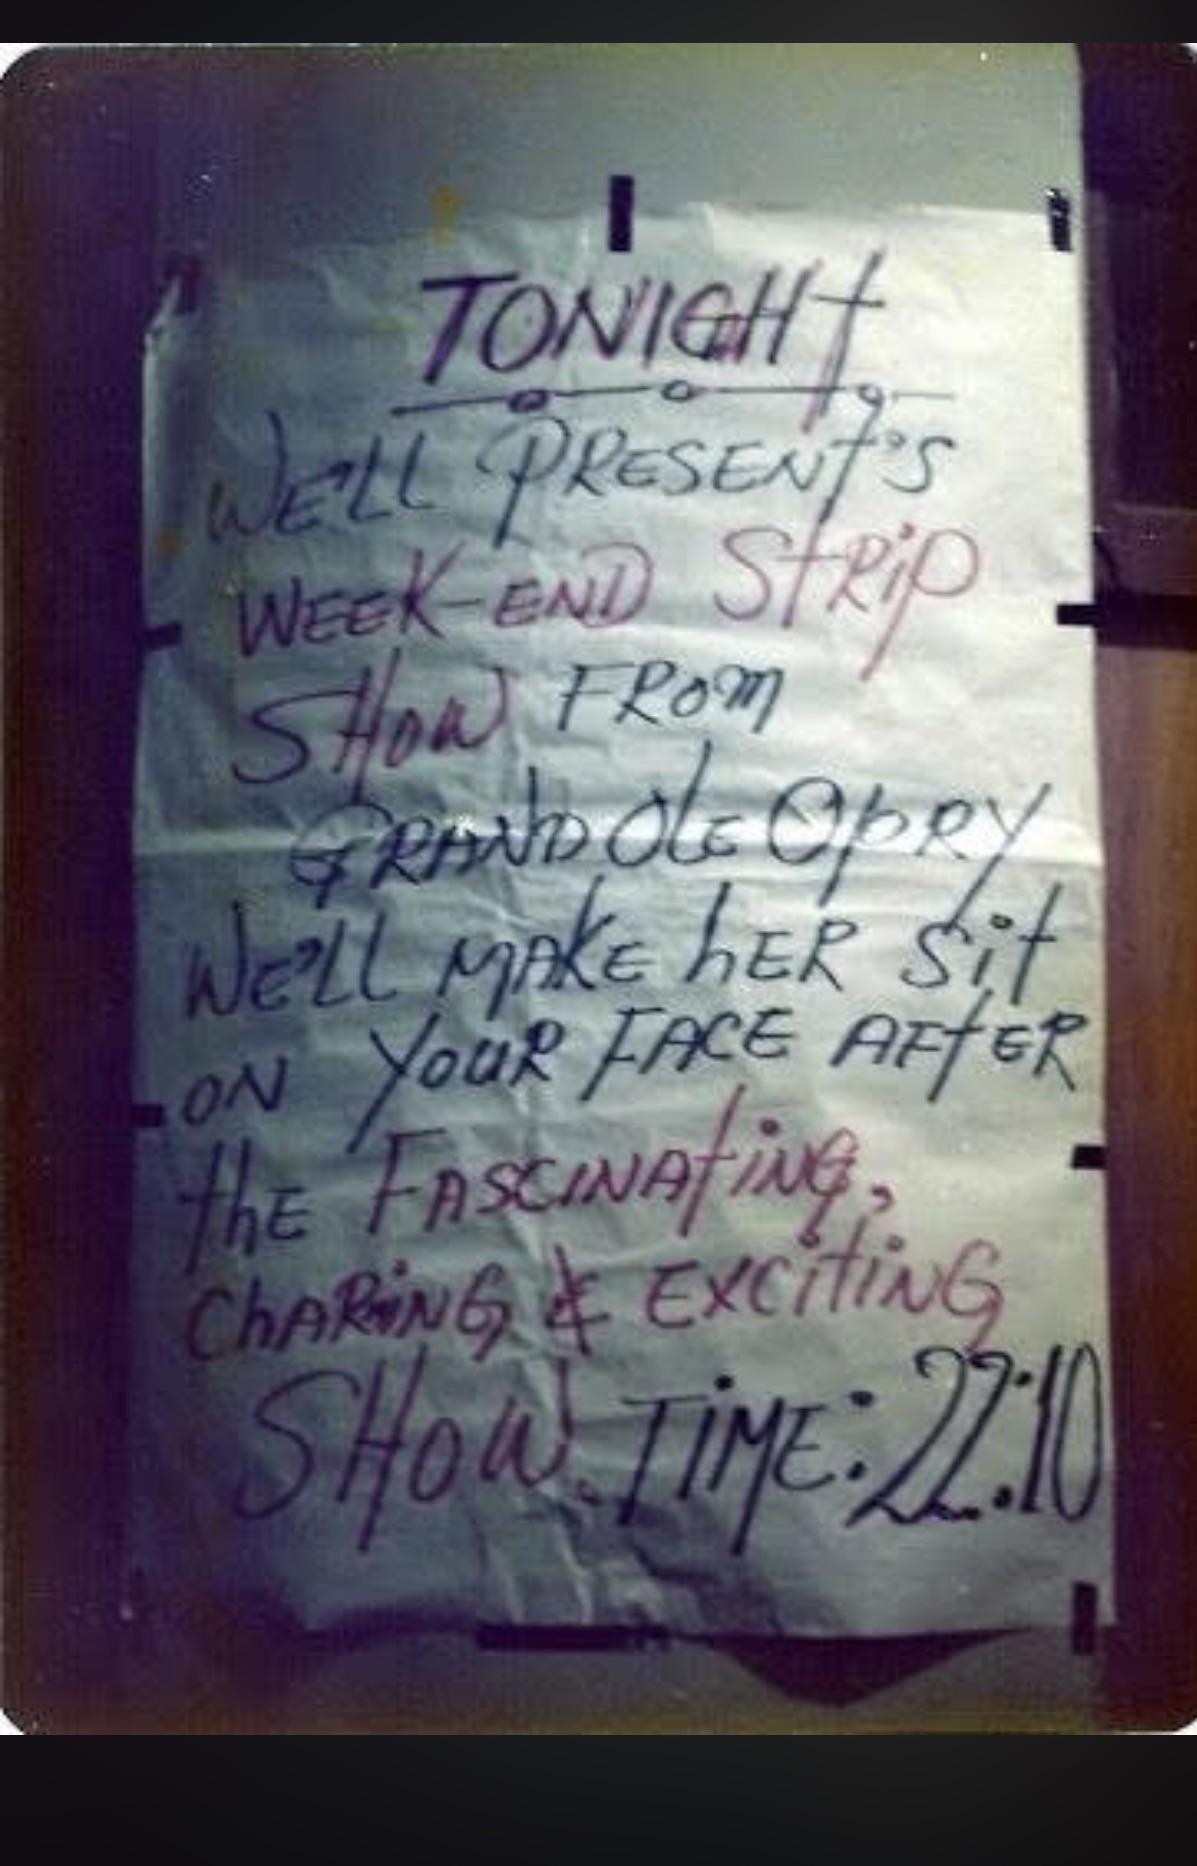 TONIGHT
WE'LL PRESENT'S
WEEK-END STRIP
SHOW FROM
GRAND OLE OPRY
WE'LL MAKE HER SIT
ON YOUR FACE AFTER
THE FASCINATING,
CHARING & EXCITING
SHOW. TIME: 22:10